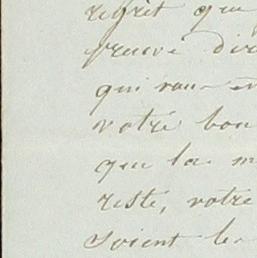 regret que
preuve dir
qui vous en
votre bon
que la m
reste, votre
soient les